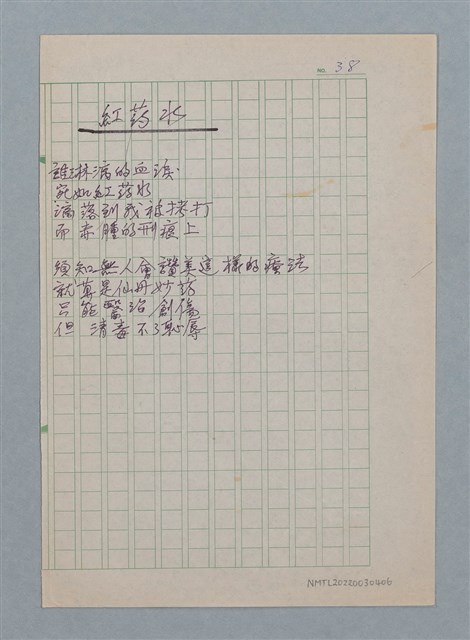 No. 38
紅药水
誰淋漓的血淚
宛如紅药水
滴落到我被拷打
而赤腫的刑痕上
須知無人會讚美這樣的療法
就算是仙丹妙药
只能醫治創傷
但消毒不了恥辱
NMTL20220030406